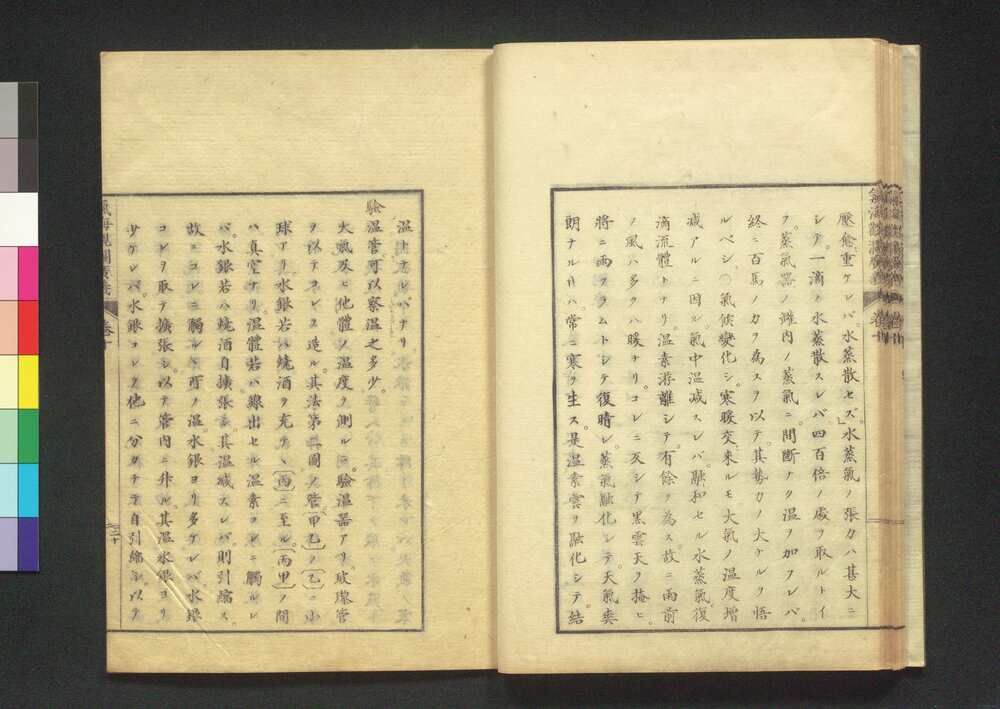 壓愈重ケレバ。水蒸散セズ。水蒸氣ノ張力ハ甚大ニ
シテ。一滴ノ水蒸散スレバ四百倍ノ處ヲ取ルトイ
フ。蒸氣器ノ滊内ノ蒸氣ニ。間断ナク温ヲ加フレバ。
終ニ百馬ノ力ヲ為スヲ以テ。其勢力ノ大ケルヲ悟
ルベシ○氣候變化シ。寒暖交來ルモ大氣ノ温度増
减アルニ因ル。氣中温减スレバ。融和セル水蒸氣復
滴流體トナリ。温素游離シテ有餘ヲ為ス。故ニ雨前
ノ風ハ多クハ暖ナリ。コレニ反シテ黒雲天ヲ掩ヒ。
將ニ雨フラムトシテ復晴レ。蒸氣融化シテ。天氣爽
朗ナル片ハ常ニ寒ヲ生ス。是温素雲ヲ融化シテ。結
温
驗温管可以察温之多少。
大氣及ヒ他體ノ温度ヲ測ルニ驗温器アリ。玻瓈管
ヲ以テコレヲ造ル。其法第二圖ノ管(甲乙)ノ(乙)ニ小
球アリ。水銀若ハ燒酒ヲ充テ、(丙)ニ至ル。(丙甲)ノ間
ハ真空ナリ。温體若ハ線出セル温素コレニ觸ルレ
バ。水銀若ハ燒酒自擴張シ。其温减スレバ則引縮ス。
故ニコレニ觸ルヽ所ノ温水銀ヨリ多ケレバ水銀
コレヲ取テ擴張シ。以テ管内ニ升ル。其温水銀ヨリ
少ケレバ水銀コレヲ他ニ分ケテ自引縮シ。以テ